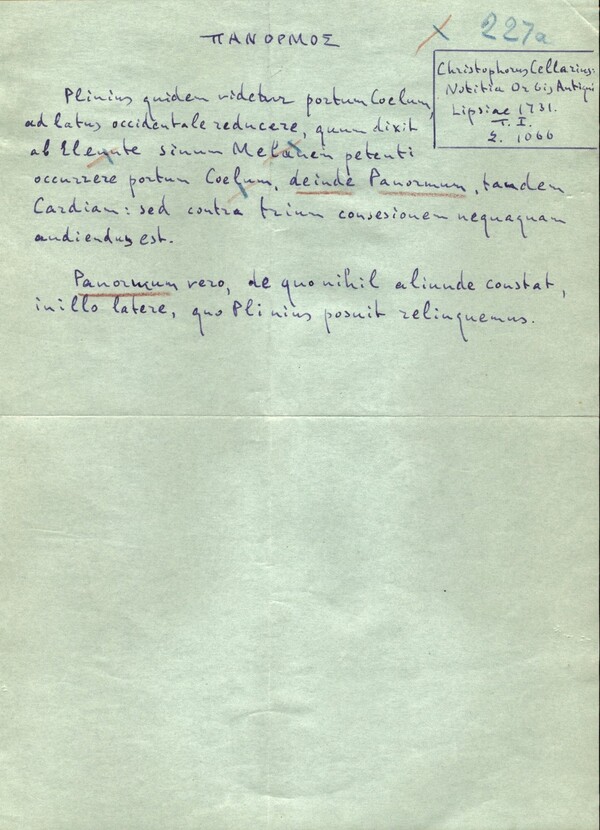 ΠΑΝΟΡΜΟΣ
x 227a
Christophorus Cellarius:
Notitia Orbis Antiqui
Lipsiae 1731.
T. I.
Σ. 1066
Plinius quidem videtur portum Coelum,
ad latus occidentale reducere, quum dixit
ab Eleunte sinum Melanen petenti
occurrere portum Coelum, deinde Panormum, tandem
Cardiam: sed contra trium consesionem nequaquam
audiendus est.
Panormum vero, de quo nihil aliunde constat,
in illo latere, quo Plinius posuit relinquemus.